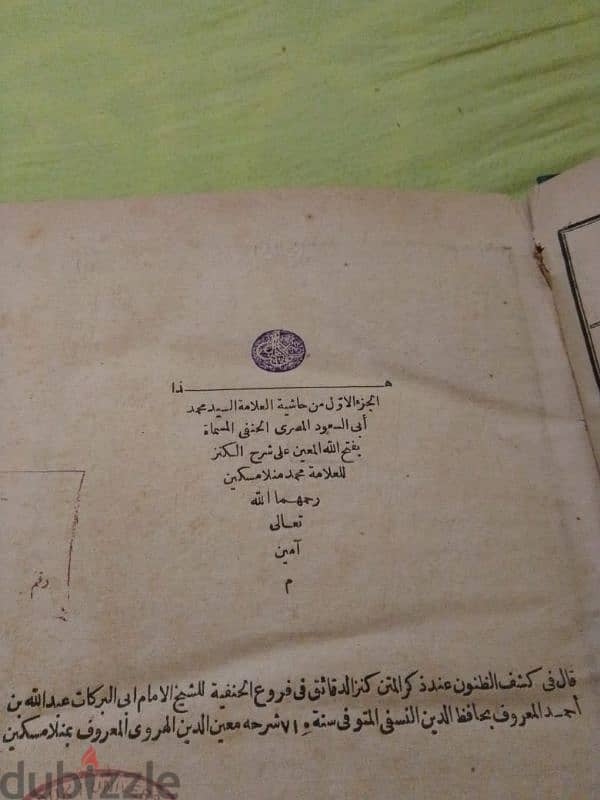 هذا
الجزء الاول من حاشية العلامة السيد محمد
أبى السعود المصرى الحنفى المسماة
بفتح الله المعين على شرح الكنز
للعلامة محمد منلا مسكين
رحمهما الله
تعالى
آمين
م
رقم
قال فى كشف الظنون عند ذكر المتن كنز الدقائق فى فروع الحنفية للشيخ الامام ابى البركات عبد الله بن
أحمد المعروف بحافظ الدين النسفى المتوفى سنة ٧١٠ شرحه معين الدين الهروى المعروف بمنلا مسكين
dubizzle